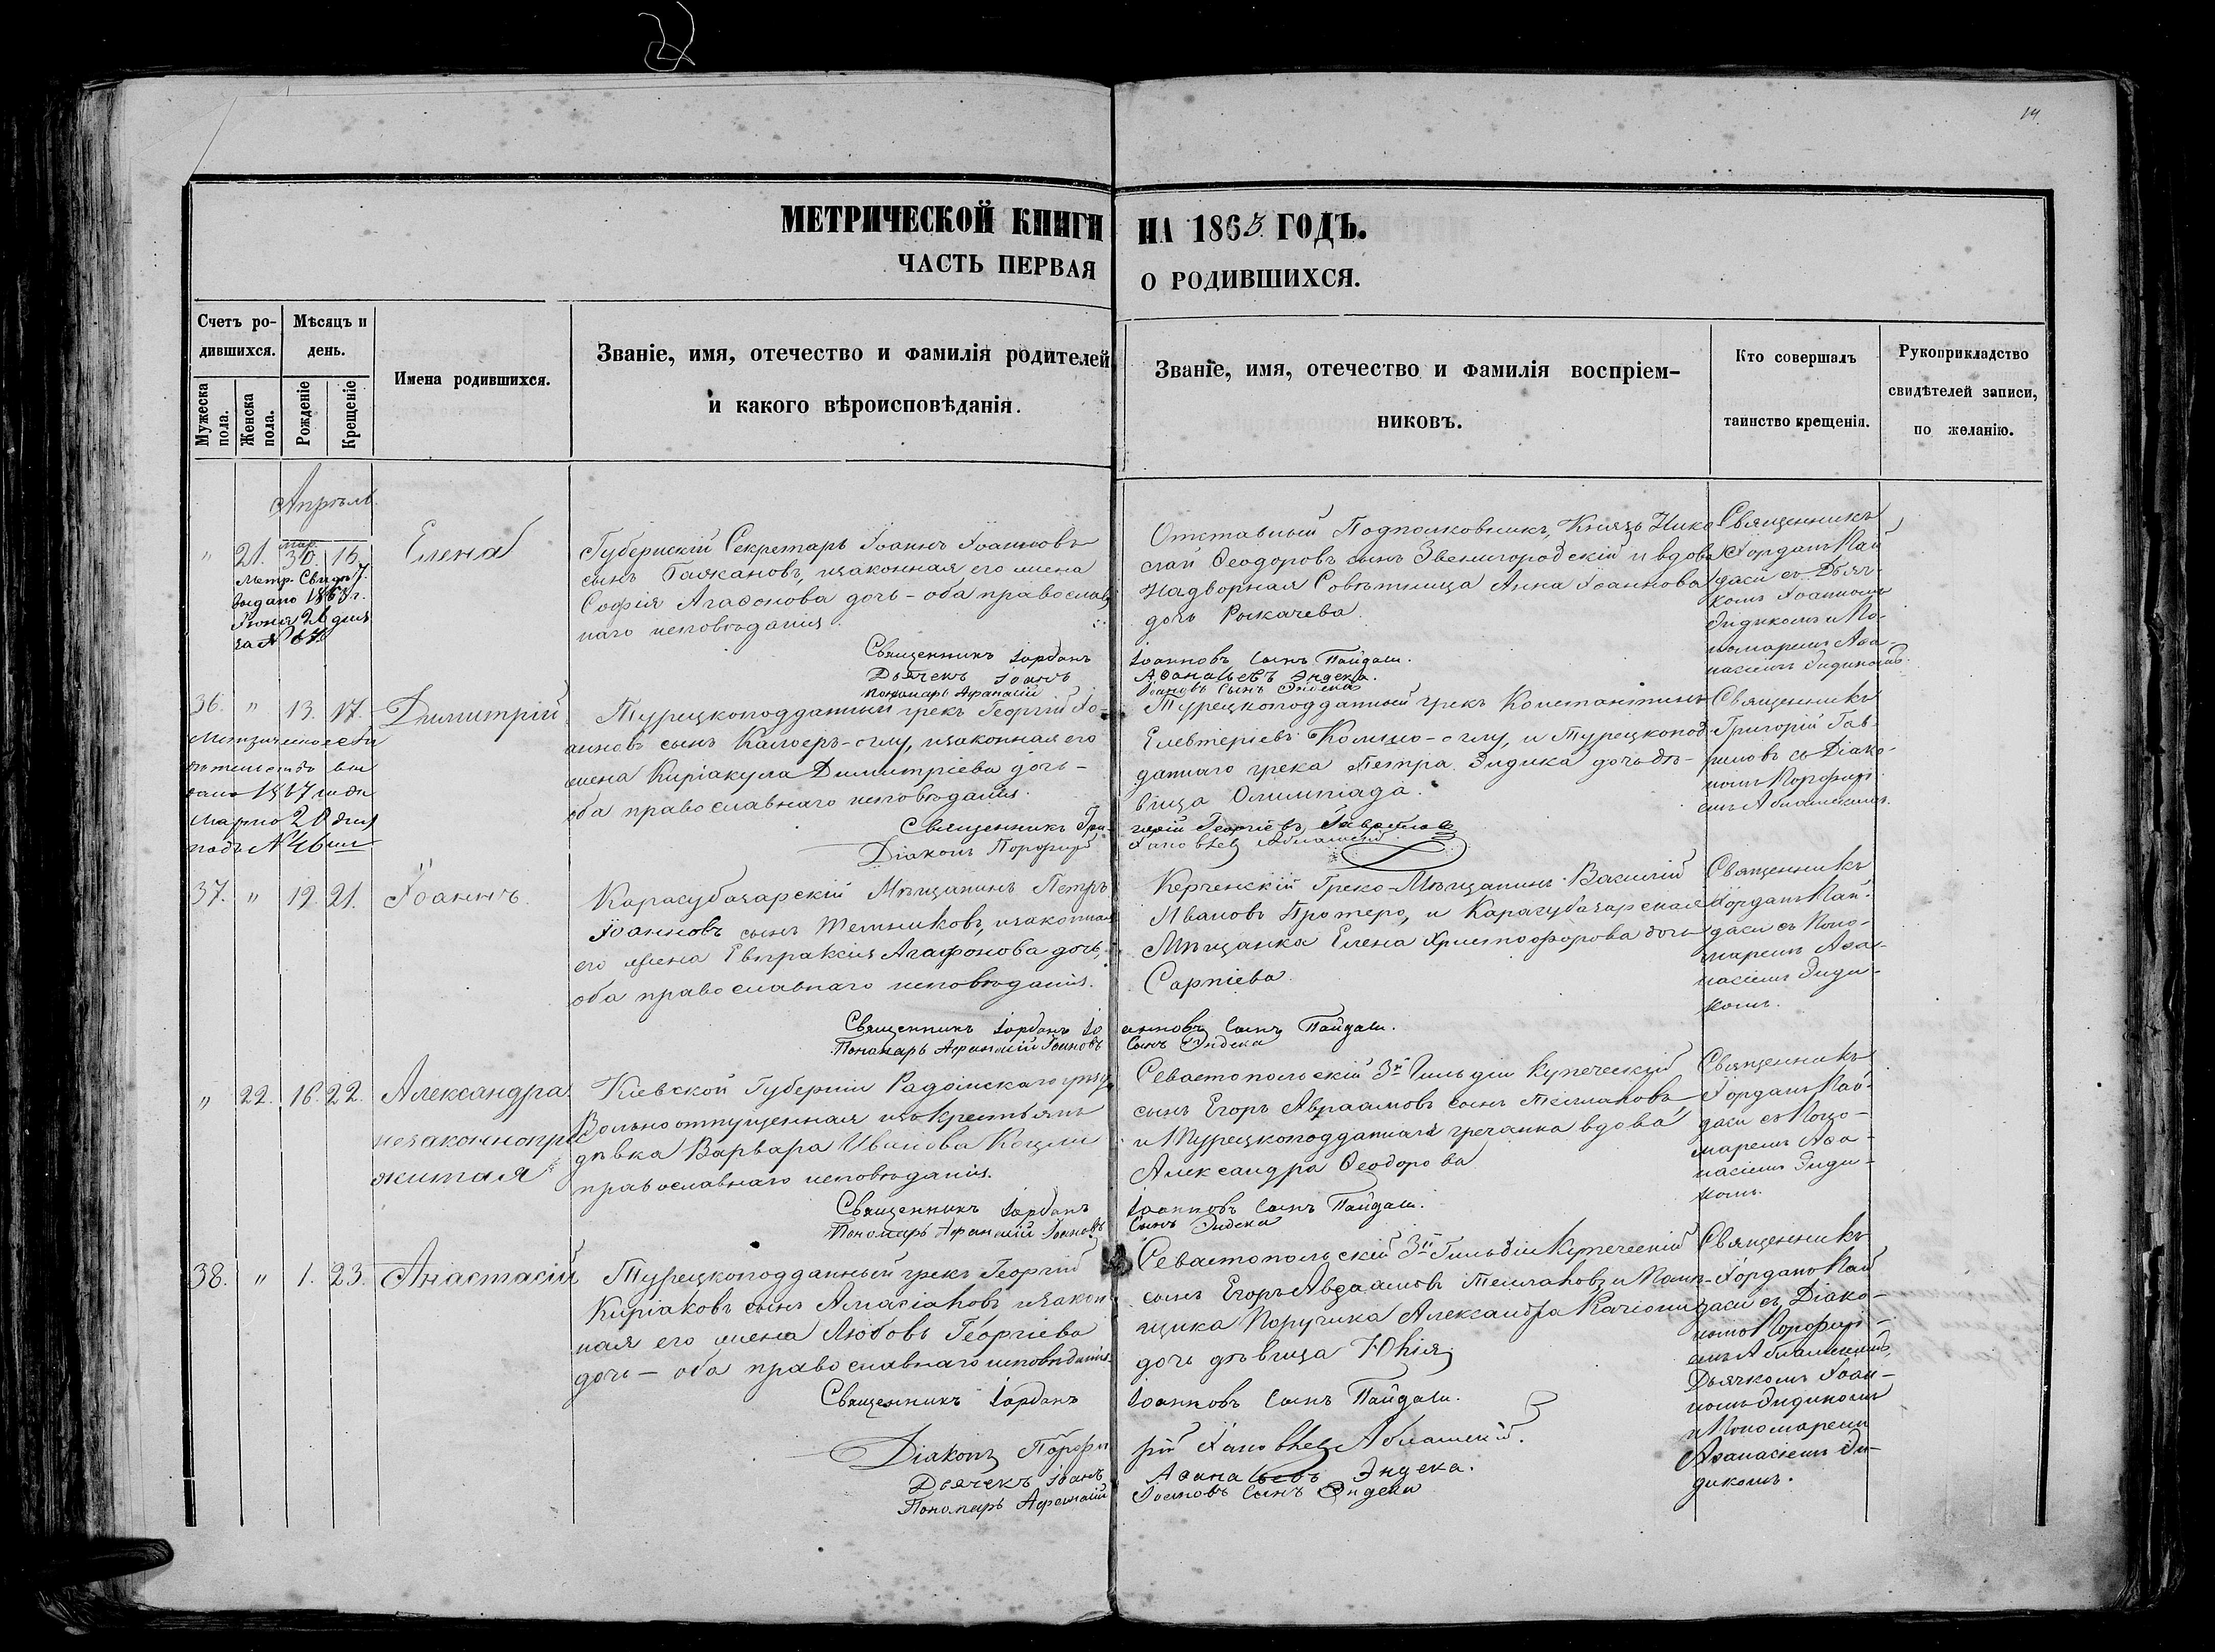 14
МЕТРИЧЕСКОЙ КНИГИ НА 1863 ГОДЪ.
ЧАСТЬ ПЕРВАЯ О РОДИВШИХСЯ.
Счетъ ро-
дившихся.
Мѣсяцъ и
день.
Мужеска
пола.
Женска
пола.
Рожденіе
Крещеніе
Имена родившихся.
Званіе, имя, отечество и фамилія родителей
и какого вѣроисповѣданія.
Званіе, имя, отечество и фамилія воспріем-
никовъ.
Кто совершалъ
таинство крещенія.
Рукоприкладство
свидѣтелей записи,
по желанію.
Апрѣль
" 21. мар. 30. 16.
Метр. Свид.
выдано 1863 г.
Іюня 21 дня
за №
Елена
Губернскій Секретарь Іоаннъ Іоанновъ
сынъ , изаконная его жена
Софія Агаѳонова дочь - оба православ
наго исповѣданія.
Священникъ Іорданъ
Дьячекъ Іоаннъ
Пономарь Афанасій
Отставный Подполковникъ, Князь Нико
лай Ѳеодоровъ сынъ Звенигородскій и вдова
Надворная Совѣтница Анна Іоаннова
дочь Рыкачева.
Іоанновъ сынъ Пайдаси.
Аѳанасьевъ Эндека.
Іоановъ сынъ Эндека
Священникъ
Іорданъ Пай
даси съ Дьяч-
комъ Іоанномъ
Эндикомъ и По-
номаремъ Аѳа-
насіемъ Эндикомъ.
36. " 13. 17.
Метрическое сви
дѣтельство вы
дано 1867 года
Марта 20 дня
подъ № 46
Димитрій
Турецкоподданный грекъ Георгій Іо-
анновъ сынъ -оглу, изаконная его
жена Киріакула Димитріева дочь -
оба православнаго исповѣданія.
Священникъ Гри-
Діаконъ Порфирій
Турецкоподданный грекъ Константинъ
Елевтеріевъ -оглу, и Турецкопод
даннаго грека Петра Эндика дочь дѣ-
вица Олимпіада.
горій Георгіевъ Гавриловъ
Священникъ
Григорій Гав-
риловъ съ Діако-
номъ Порфирі-
емъ
37. " 12. 21.
Іоаннъ.
Карасубазарскій Мѣщанинъ Петръ
Іоанновъ сынъ , изаконная
его жена Евпраксія Агафонова дочь,
оба православнаго исповѣданія.
Священникъ Іорданъ Іо
Пономарь Афанасій Іоановъ
Керченскій Греко-Мѣщанинъ Василій
Ивановъ Протеро, и Карасубазарская
Мѣщанка Елена Христофорова дочь
Саргіева.
анновъ сынъ Пайдаси.
сынъ Эндека
Священникъ
Іорданъ Пай-
даси съ Поно-
маремъ Аѳа-
насіемъ Энди-
комъ.
" 22. 16. 22.
Александра
незаконнопри
житая
Кіевской Губерніи
Вольноотпущенная изъ крестьянъ
дѣвка Варвара Иванова
православнаго исповѣданія.
Священникъ Іорданъ
Пономарь Афанасій Іоановъ
Севастопольскій 3й Гильдіи Купеческій
сынъ Егоръ Авраамовъ сынъ
и Турецкоподданная гречанка вдова
Александра Ѳеодорова
Іоанновъ сынъ Пайдаси.
сынъ Эндека
Священникъ
Іорданъ Пай-
даси съ Поно-
маремъ Аѳа-
насіемъ Энди-
комъ.
38. " 1. 23.
Анастасій
Турецкоподданный грекъ Георгій
Киріаковъ сынъ изакон
ная его жена Любовь Георгіева
дочь - оба православнаго исповѣданія.
Священникъ Іорданъ
Діаконъ Порфи
Дьячекъ Іоанъ
Пономарь Афанасій
Севастопольскій 3й Гильдіи Купеческій
сынъ Егоръ Авраамовъ и Помѣ-
щика Поручика Александра
дочь дѣвица Юлія
Іоанновъ сынъ Пайдаси.
рій
Аѳанасьевъ Эндека.
Іоановъ сынъ Эндека
Священникъ
Іорданъ Пай
даси съ Діако-
номъ Порфирі-
емъ
Дьячкомъ Іоан-
номъ Эндикомъ
и Пономаремъ
Аѳанасіемъ Эн-
дикомъ.